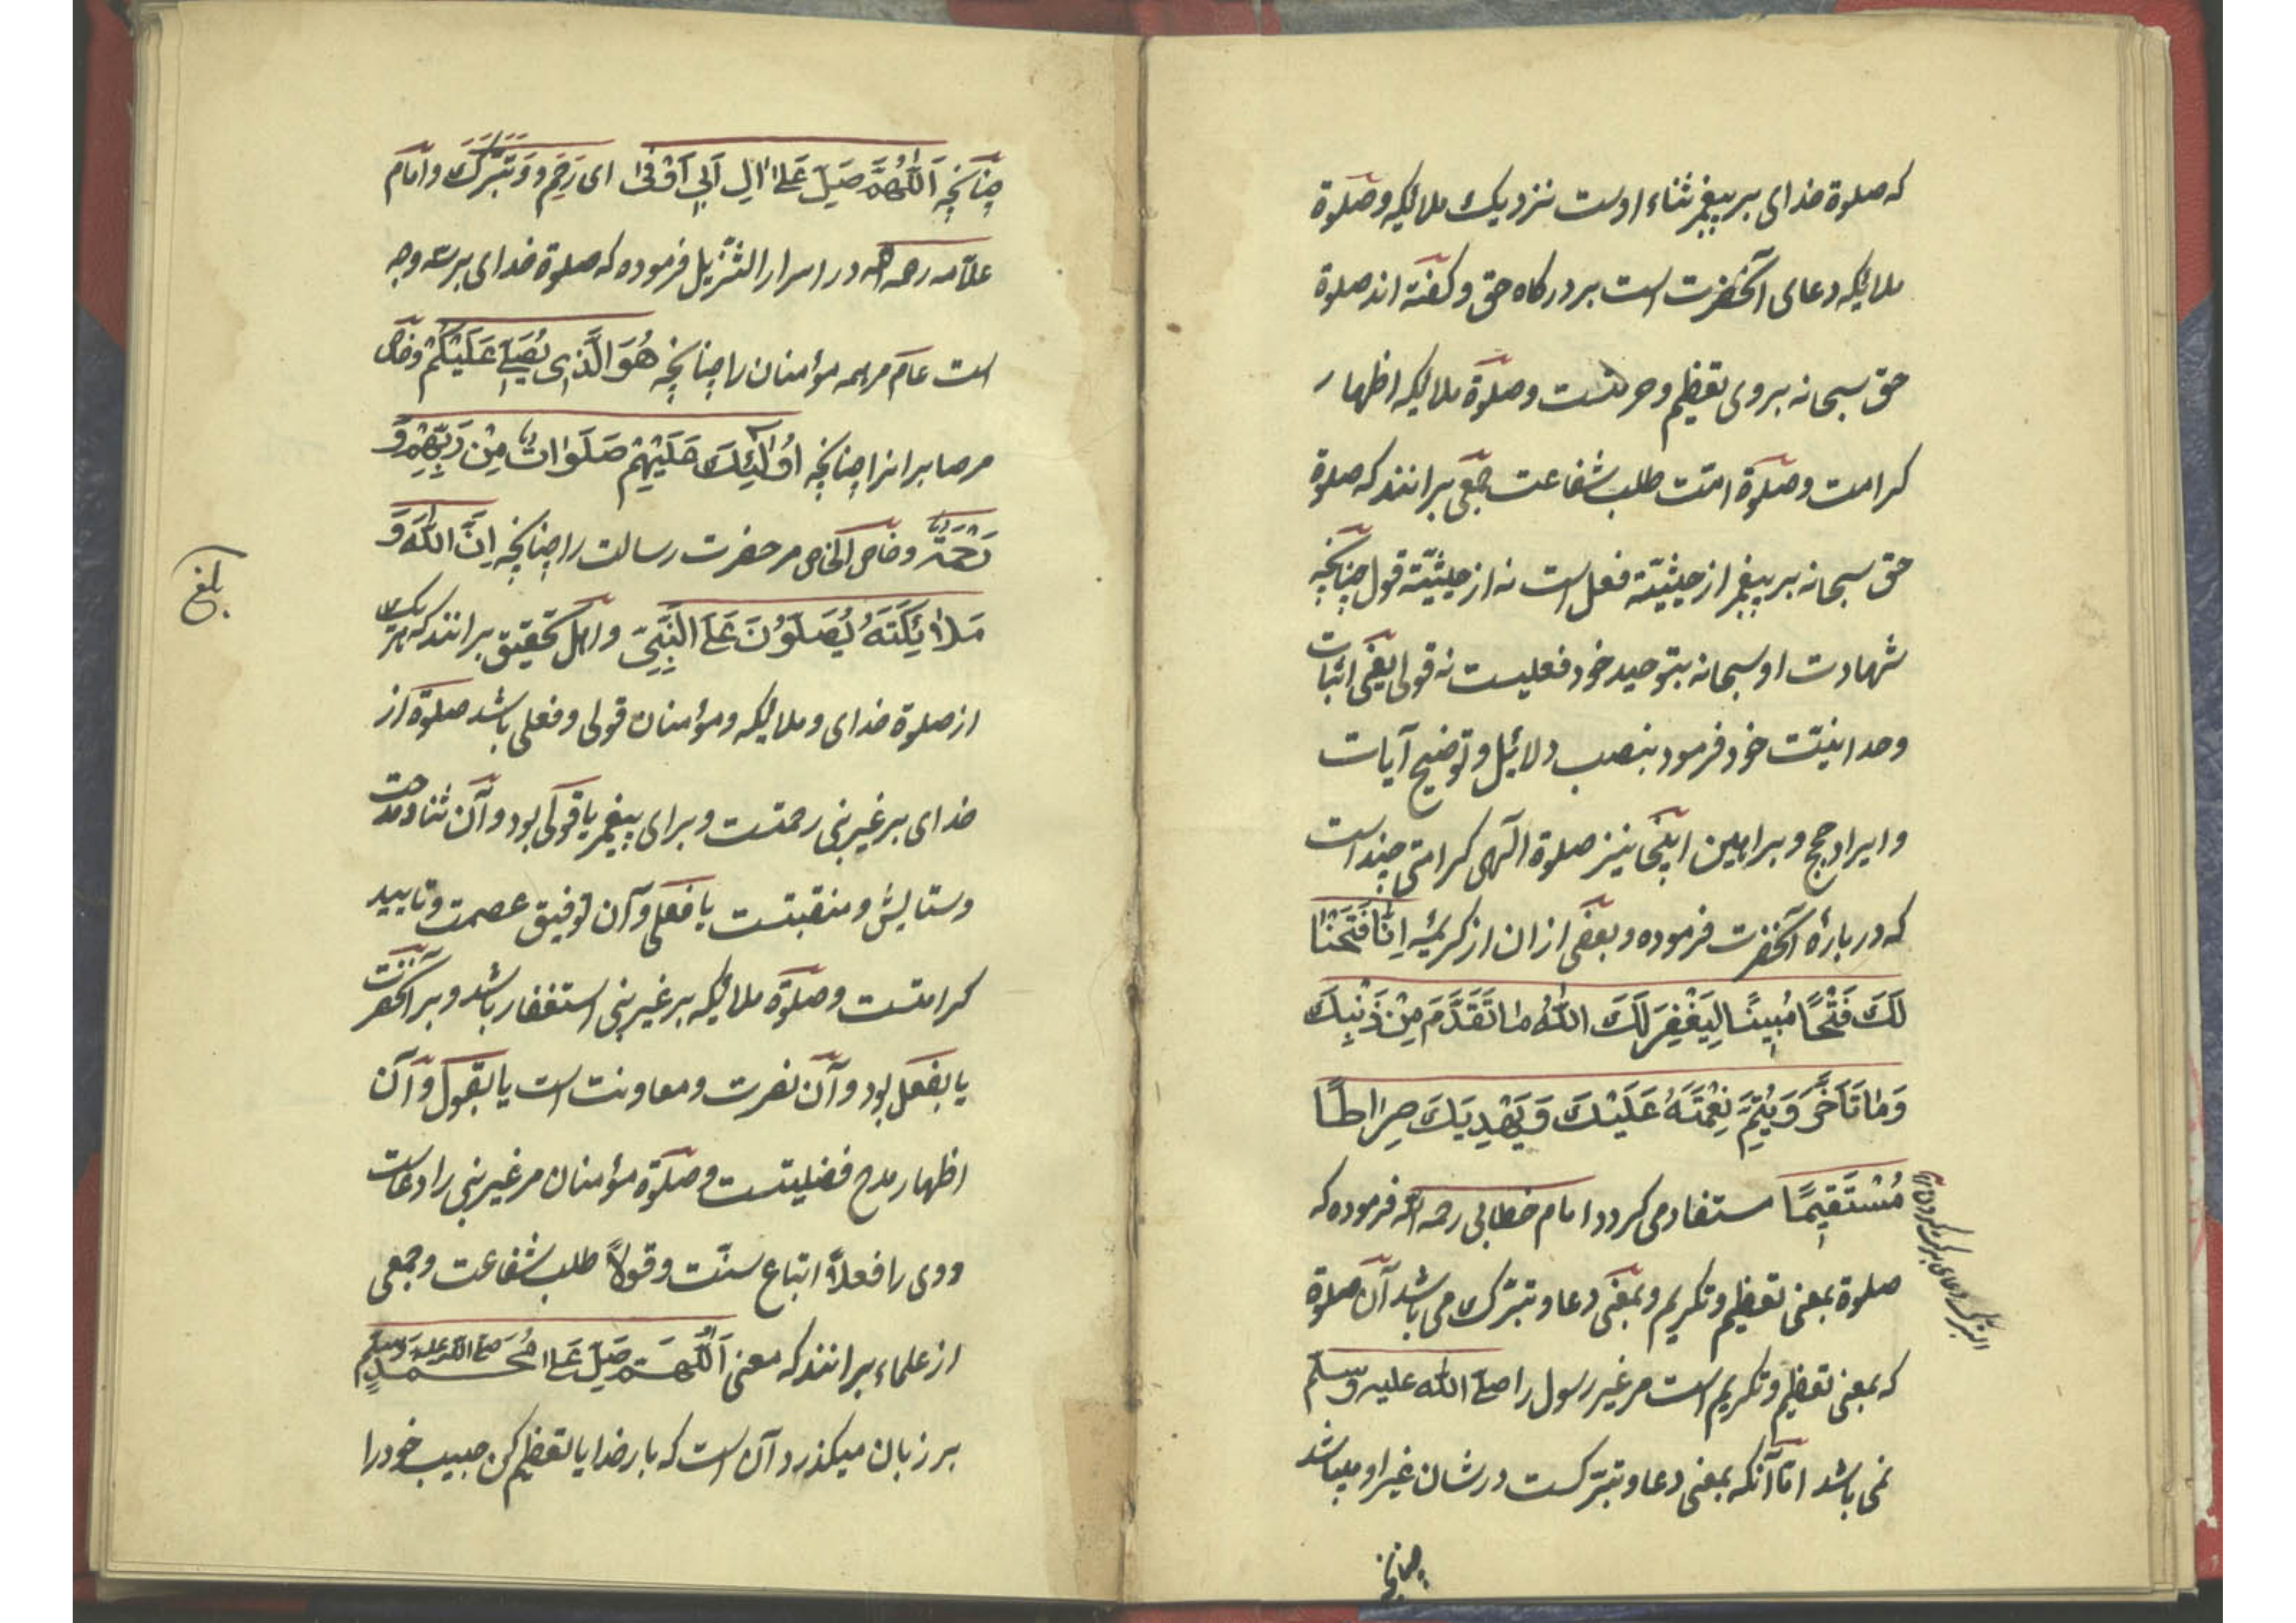 که صلوة خدای بر پیغمبر ثناء اوست نزدیک ملائکه و صلوة
ملائکه دعای آنحضرت است بر درکاه حق و کفته اند صلوة
حق سبحانه بر وی تعظیم و حرمتست و صلوة ملائکه اظهار
کرامت و صلوة امت طلب شفاعت جمعی برانند که صلوة
حق سبحانه بر پیغمبر از حیثیّت فعل است نه از حیثیّت قول چنانچه
شهادت او سبحانه بتوحید خود فعلیست نه قولی یعنی اثبات
وحدانیّت خود فرمود بنصب دلائل و توضیح آیات
و ایراد حجج و براهین اینجا نیز صلوة الهی کرامتی چند است
که در بارۀ آنحضرت فرموده و بعضی ازان از کریمۀ اِنَّا فَتَحْنَا
لَكَ فَتْحًا مُبِینًا لِیَغْفِرَ لَكَ اللهُ مَا تَقَدَّمَ مِنْ ذَنْبِكَ
وَمَا تَأَخَّرَ وَیُتِمَّ نِعْمَتَهُ عَلَیْكَ وَیَهْدِیَكَ صِرَاطًا
مُسْتَقِیمًا مستفاد می کردد امام خطابی رحمه الله فرموده که
صلوة بمعنی تعظیم و تکریم و بمعنی دعا و تبرّک می باشد آن صلوة
که بمعنی تعظیم و تکریم است مر غیر رسول را صلی الله علیه وسلم
نمی باشد امّا آنکه بمعنی دعا و تبرّکست در شان غیر او میباشد
چنانچه
التبرک دعای برکت کردن
چنانچه اَللّٰهُمَّ صَلِّ عَلَی اٰلِ اَبِی اَوْفٰی ای رَحِّمْ و تَبَرَّكَ و امام
علّامه رحمه الله در اسرار التنزیل فرموده که صلوة خدای بر سه وجه
است عام مر همه مؤمنان را چنانچه هُوَ الَّذِی یُصَلِّی عَلَیْكُمْ و خاص
مر صابرانرا چنانچه اُولٰئِكَ عَلَیْهِمْ صَلَوَاتٌ مِنْ رَبِّهِمْ وَ
رَحْمَةٌ و خاص الخاص مر حضرت رسالت را چنانچه اِنَّ اللهَ وَ
مَلَائِكَتَهُ یُصَلُّونَ عَلَی النَّبِیِّ و اهل تحقیق برانند که هر یک
از صلوة خدای و ملائکه و مؤمنان قولی و فعلی باشد صلوة از
خدای بر غیر نبی رحمتست و برای پیغمبر یا قولی بود و آن ثنا و مدحت
و ستایش و منقبتست یا فعلی و آن توفیق عصمت و تایید
کرامتست و صلوة ملائکه بر غیر نبی استغفار باشد و بر آنحضرت
یا بفعل بود و آن نصرت و معاونت است یا بقول و آن
اظهار مدح فضیلتست و صلوة مؤمنان مر غیر نبی را دعاست
و وی را فعلاً اتباع سنّت و قولاً طلب شفاعت و جمعی
از علماء برانند که معنی اَللّٰهُمَّ صَلِّ عَلَی مُحَمَّدٍ صلی الله علیه وسلم
بر زبان میکذرد آن است که بار خدایا تعظیم کن حبیب خود را
بلغ